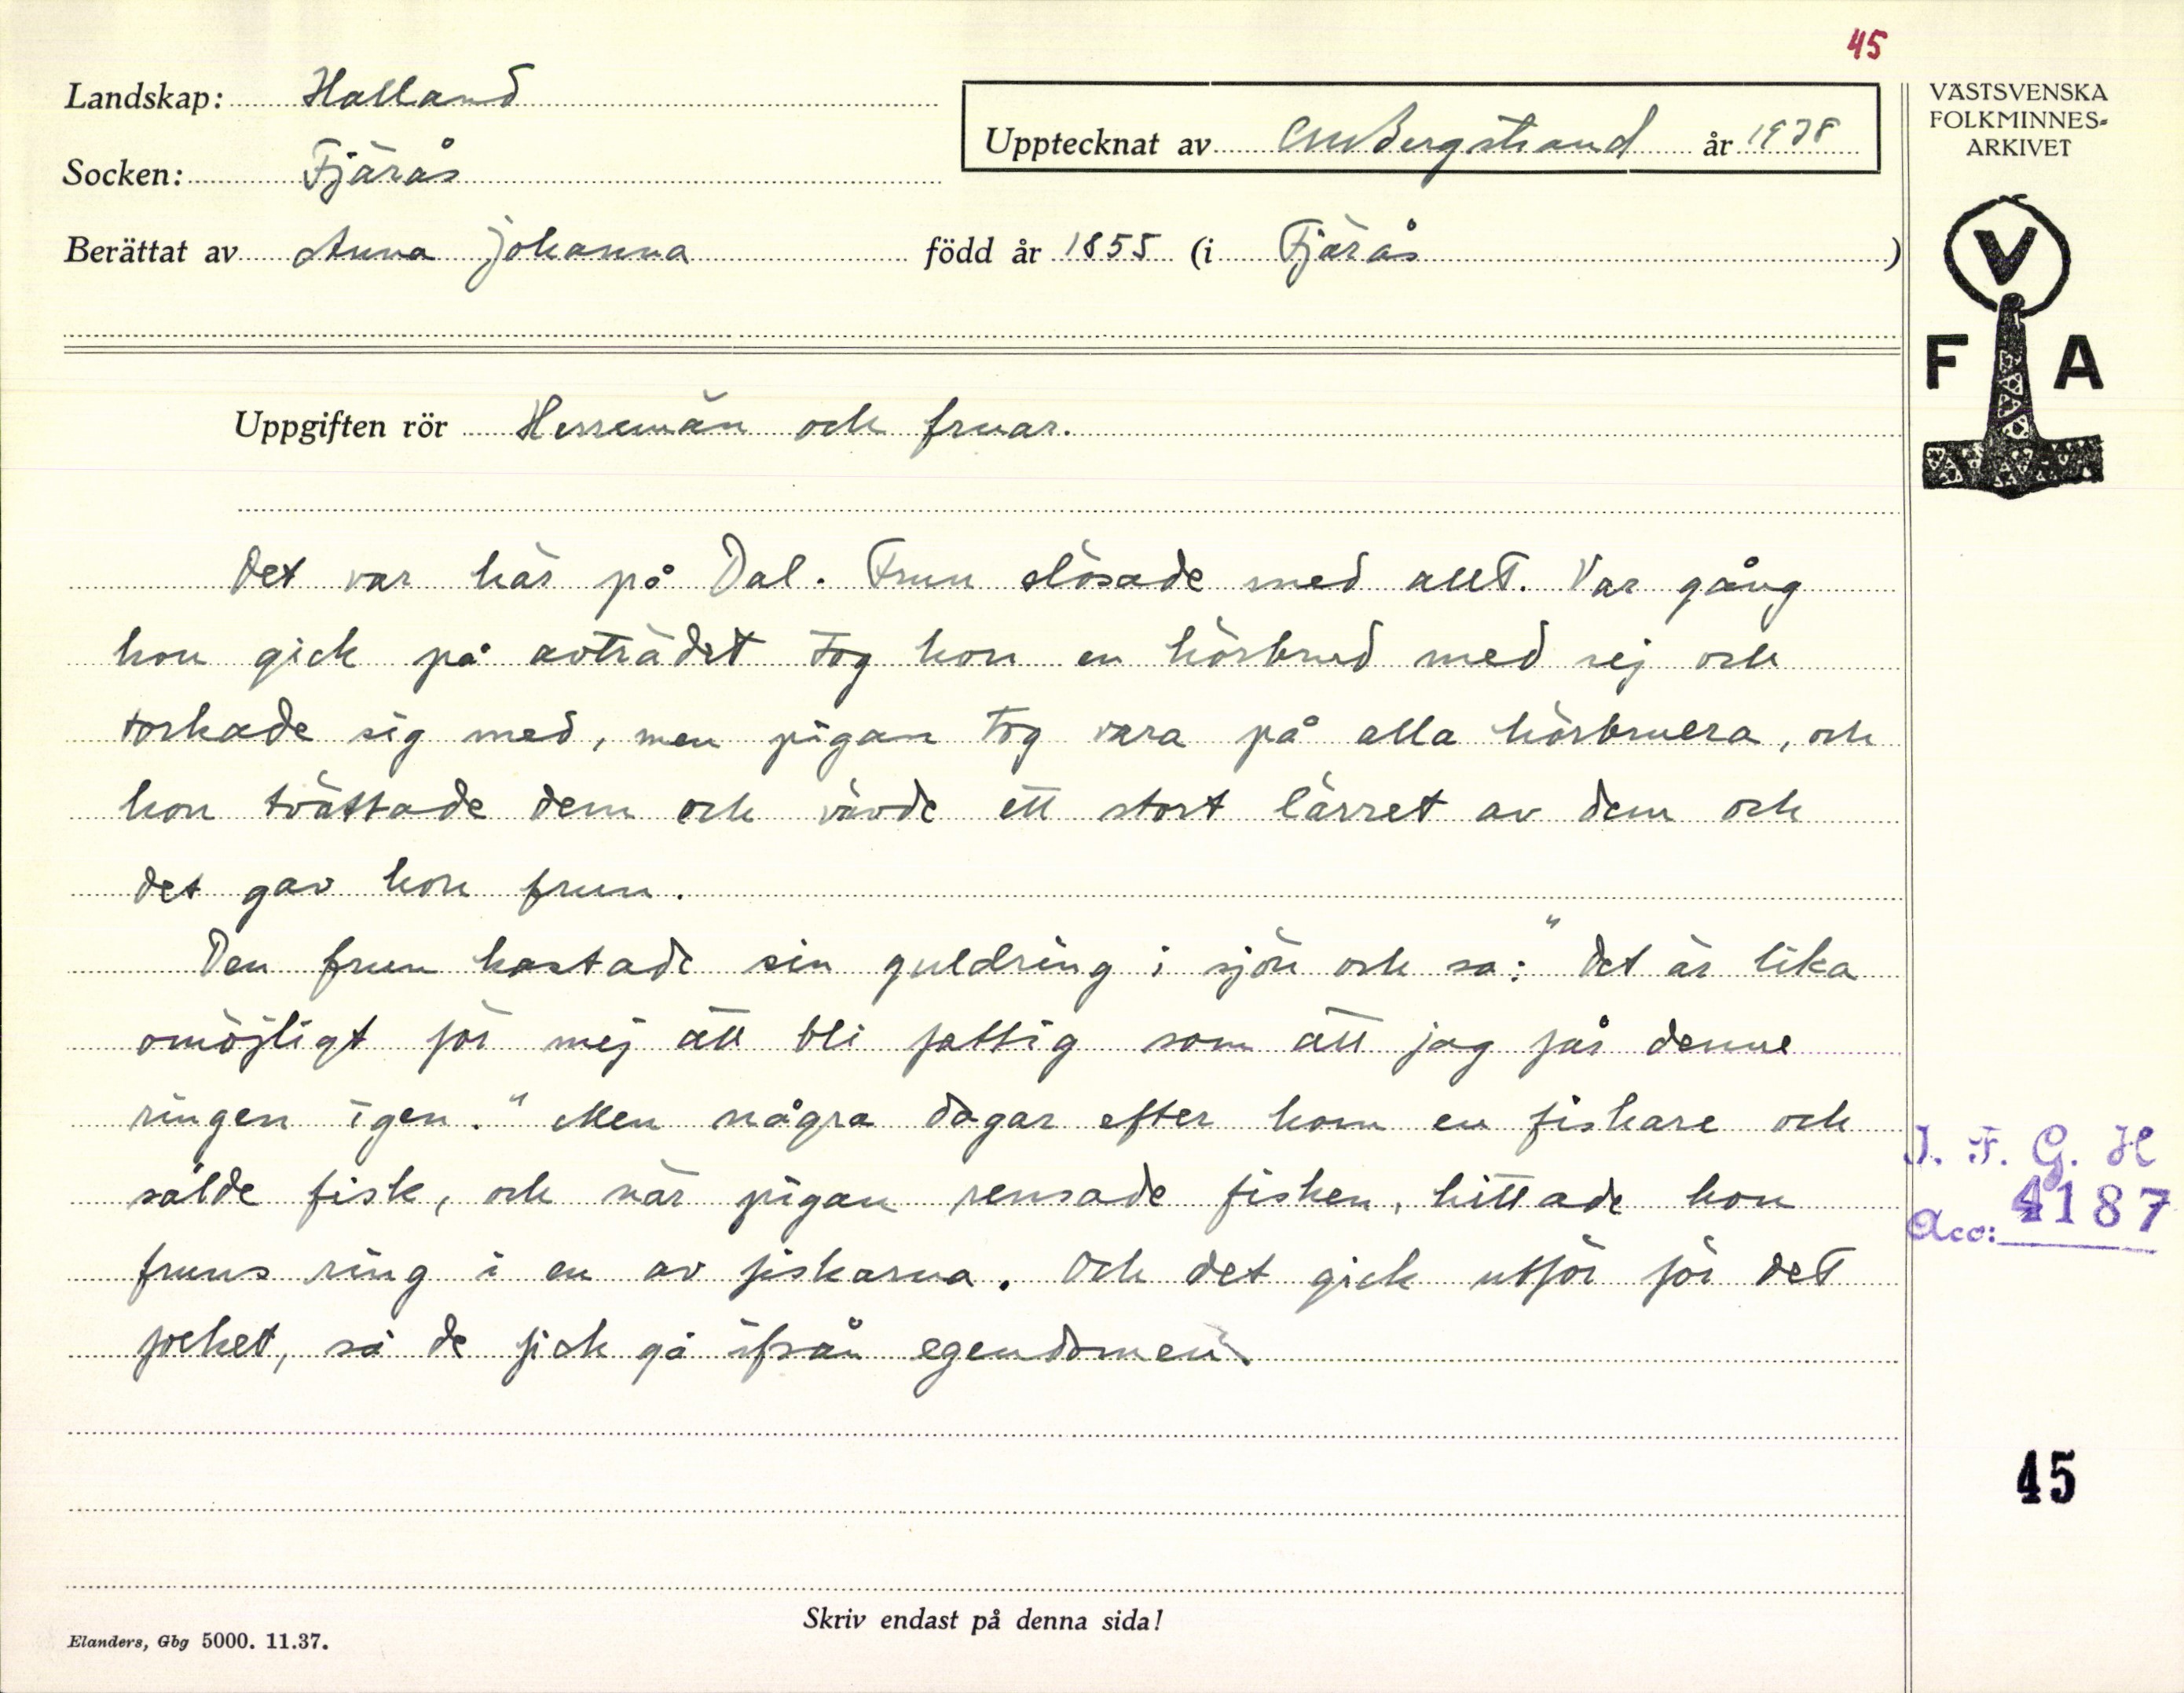 45
Landskap: Halland
Upptecknat av CMBergstrand år 1938
Socken: Fjärås
Berättat av Anna Johanna född år 1855 (i Fjärås)
VÄSTSVENSKA
FOLKMINNES-
ARKIVET
V
F A
Uppgiften rör Herremän och fruar.
Det var här på Dal. Frun slösade med allt. Var gång
hon gick på avträdet tog hon en hörbrud med sej och
torkade sig med, men pigan tog vara på alla hörbruera, och
hon tvättade dem och vävde ett stort lärret av dem och
det gav hon frun.
Den frun kastade sin guldring i sjön och sa: "Det är lika
omöjligt för mej att bli fattig som att jag får denne
ringen igen." Men några dagar efter kom en fiskare och
sålde fisk, och när pigan rensade fisken, hittade hon
fruns ring i en av fiskarna. Och det gick utför för det
focket, så de fick gå ifrån egendomen.
I. F. G. H
Acc: 4187
45
Skriv endast på denna sida!
Elanders, Gbg 5000. 11.37.